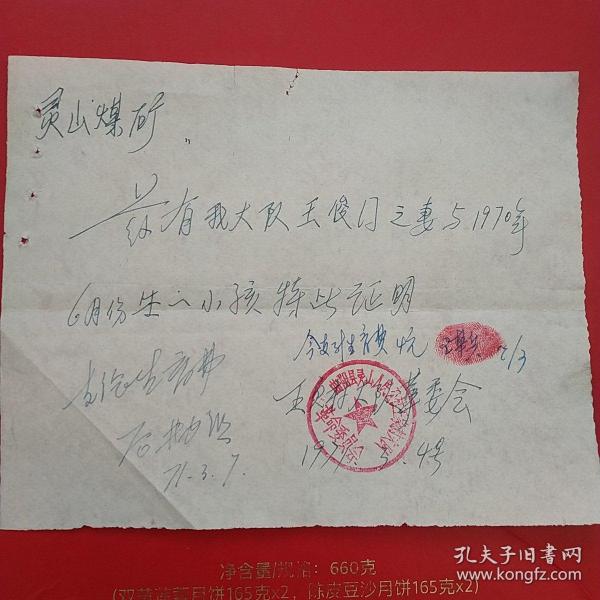 灵山煤矿
兹有我大队王俊门之妻与1970年
6月份生一小孩特此证明
今支到生育费 元 7/3
王 村大队革委会
1971. 3. 4号
曲阳县灵山人民公社
革命委员会
支给生育费
71.3.7.
净含量/规格：660克
(双黄莲蓉月饼165克x2，陈皮豆沙月饼165克x2)
孔夫子旧书网
www.kongfz.com